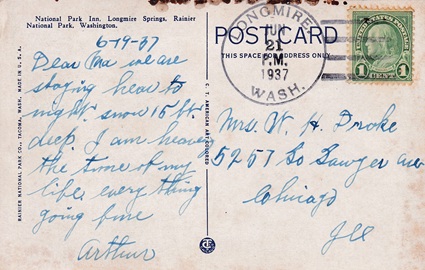 National Park Inn, Longmire Springs, Rainier
National Park, Washington.
6-19-37
Dear Ma we are
staying hear to
night. snow 15 ft.
deep. I am heaveng
the time of my
life, every thing
going fine
Arthur
RAINIER NATIONAL PARK CO., TACOMA, WASH. MADE IN U.S.A.
C. T. AMERICAN ART COLORED
POST CARD
THIS SPACE FOR ADDRESS ONLY
LONGMIRE
JUN
21
P.M.
1937
WASH.
UNITED STATES POSTAGE
1 1
Mrs. W. H. Droke
5257 So Lawyer ave
Chicago
Ill